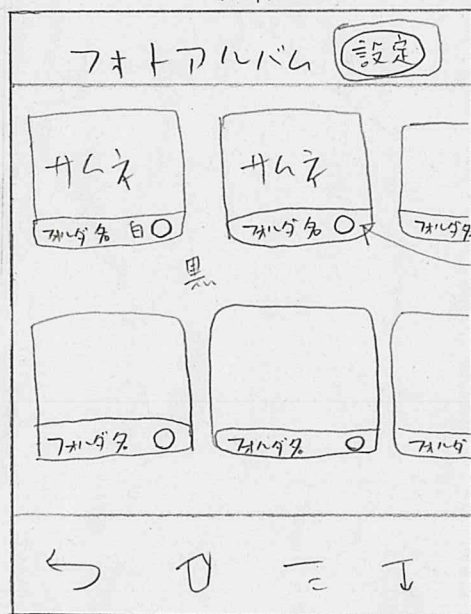 フォトアルバム 設定
サムネ サムネ
フォルダ名 白 フォルダ名 フォルダ名
黒
フォルダ名 フォルダ名 フォルダ